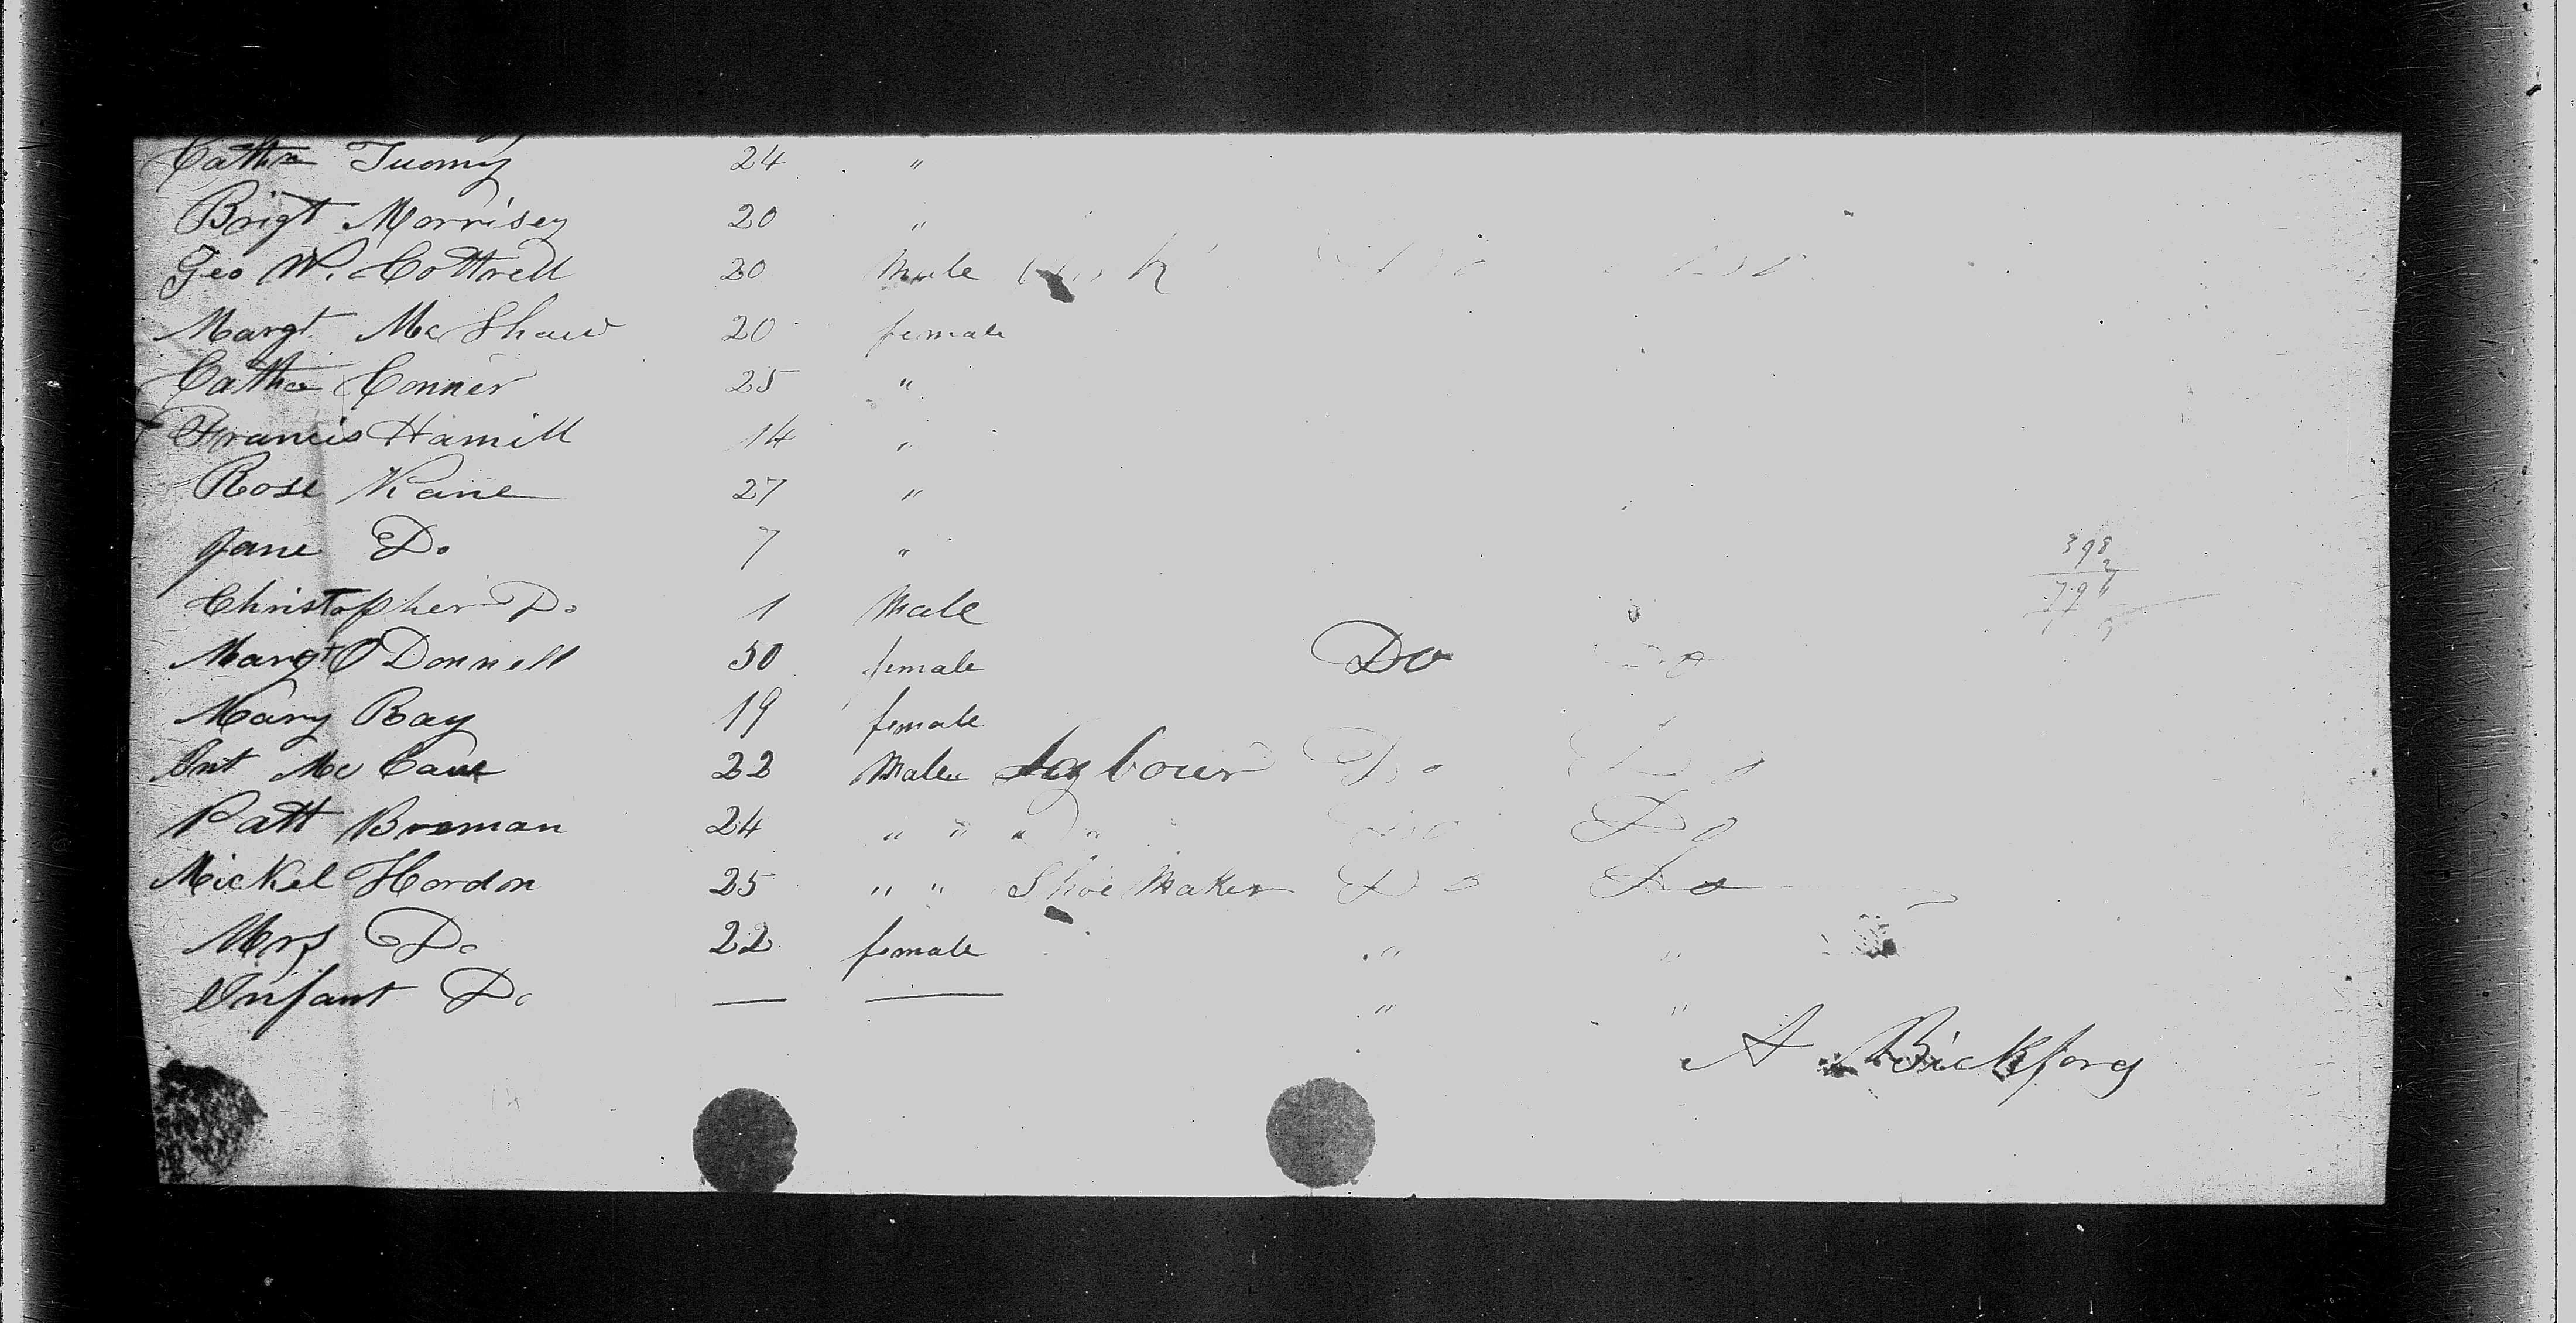 Cathn Tuomy 24 "
Brigt Morrisey 20 "
Geo W. Cottrell 20 Male Do
Margt McShaw 20 female
Cathn Conner 25 "
Francis Hamill 14 "
Rose Kane 27 "
Jane Do 7 "
398
2
796
Christopher Do 1 Male
Margt O'Donnell 30 female Do Do
Mary Ray 19 female
Ant Mc Cave 22 Male Labour Do Do
Patt Breman 24 " " " " Do Do
Mickel Hordon 25 " " Shoe Maker Do Do
Mrs Do 22 female " "
Infant Do — — " "
A Bickford